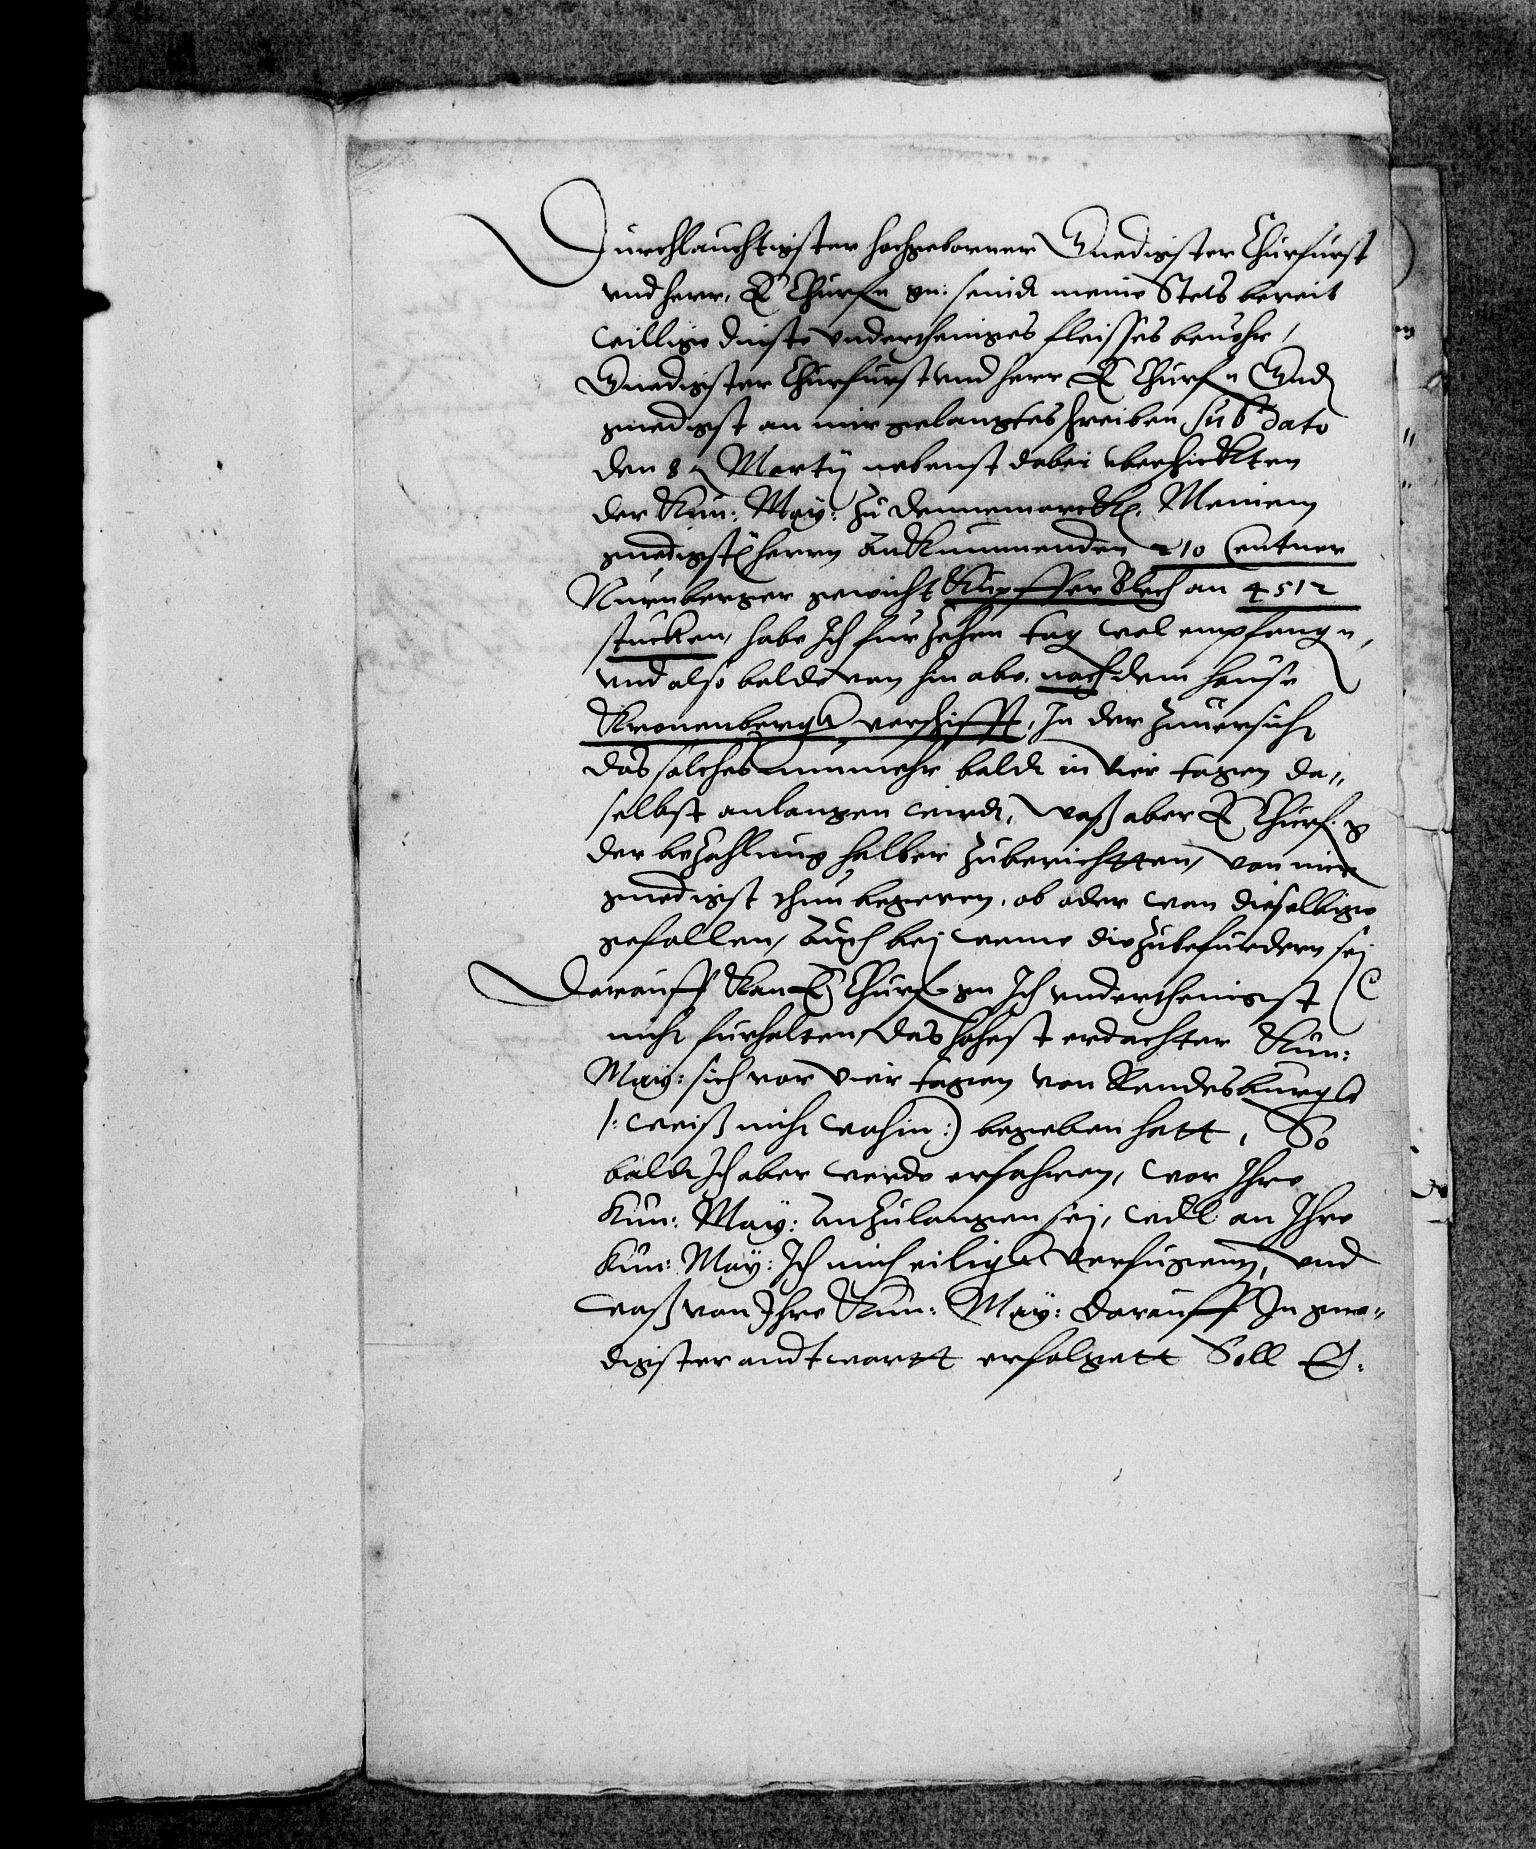 Durchlauchtigster hochgeborner Gnedigster Churfurst
vnd herr, E Churf gn: seind meine Stets bereit
willige dinste vndertheniges fleisses beuohr,
Gnedigster Churfurst vnd herr E Churf Gnd
gnedigst an mir gelangtes schreiben sub dato
den 8 Martij nebenst dabei vberschickten
der Kün: May: zu Dennemarck. Meinem
gnedigst herrn ankummenden 210 Centner
Nurnberger gewicht Kupffer Blech an 4512
stucken, habe Ich fur zehen tag wol empfangn,
vnd also balde von hin abe, nach dem hause
Kronenbergk verschifft, In der zuuersicht
das solches nunmehr baldt in vier tagen da„
selbst anlangen wirdt, waß aber E Churf. g
der bezahlung halber zuberichtten, von mir
gnedigst thun begeren, ob oder wan dieselbige
gefallen, auch bej weme die zubefurdern sej
Darauff kan E Churf gn Ich vnderthenigst
nicht furhalten, das hohest erdachter Kün:
May: sich vor vier tagen von Rendesburgk
/: weiß nicht wohin :) begeben hatt, So
baldt Ich aber werde erfahren, wor Ihre
Kün: May: anzulangen sej, will an Ihre
Kün: May: Ich mich eiligk verfugenn, vnd
waß von Ihre Kün: May: darauff In gne„
digster andtwortt erfolgett Soll E: